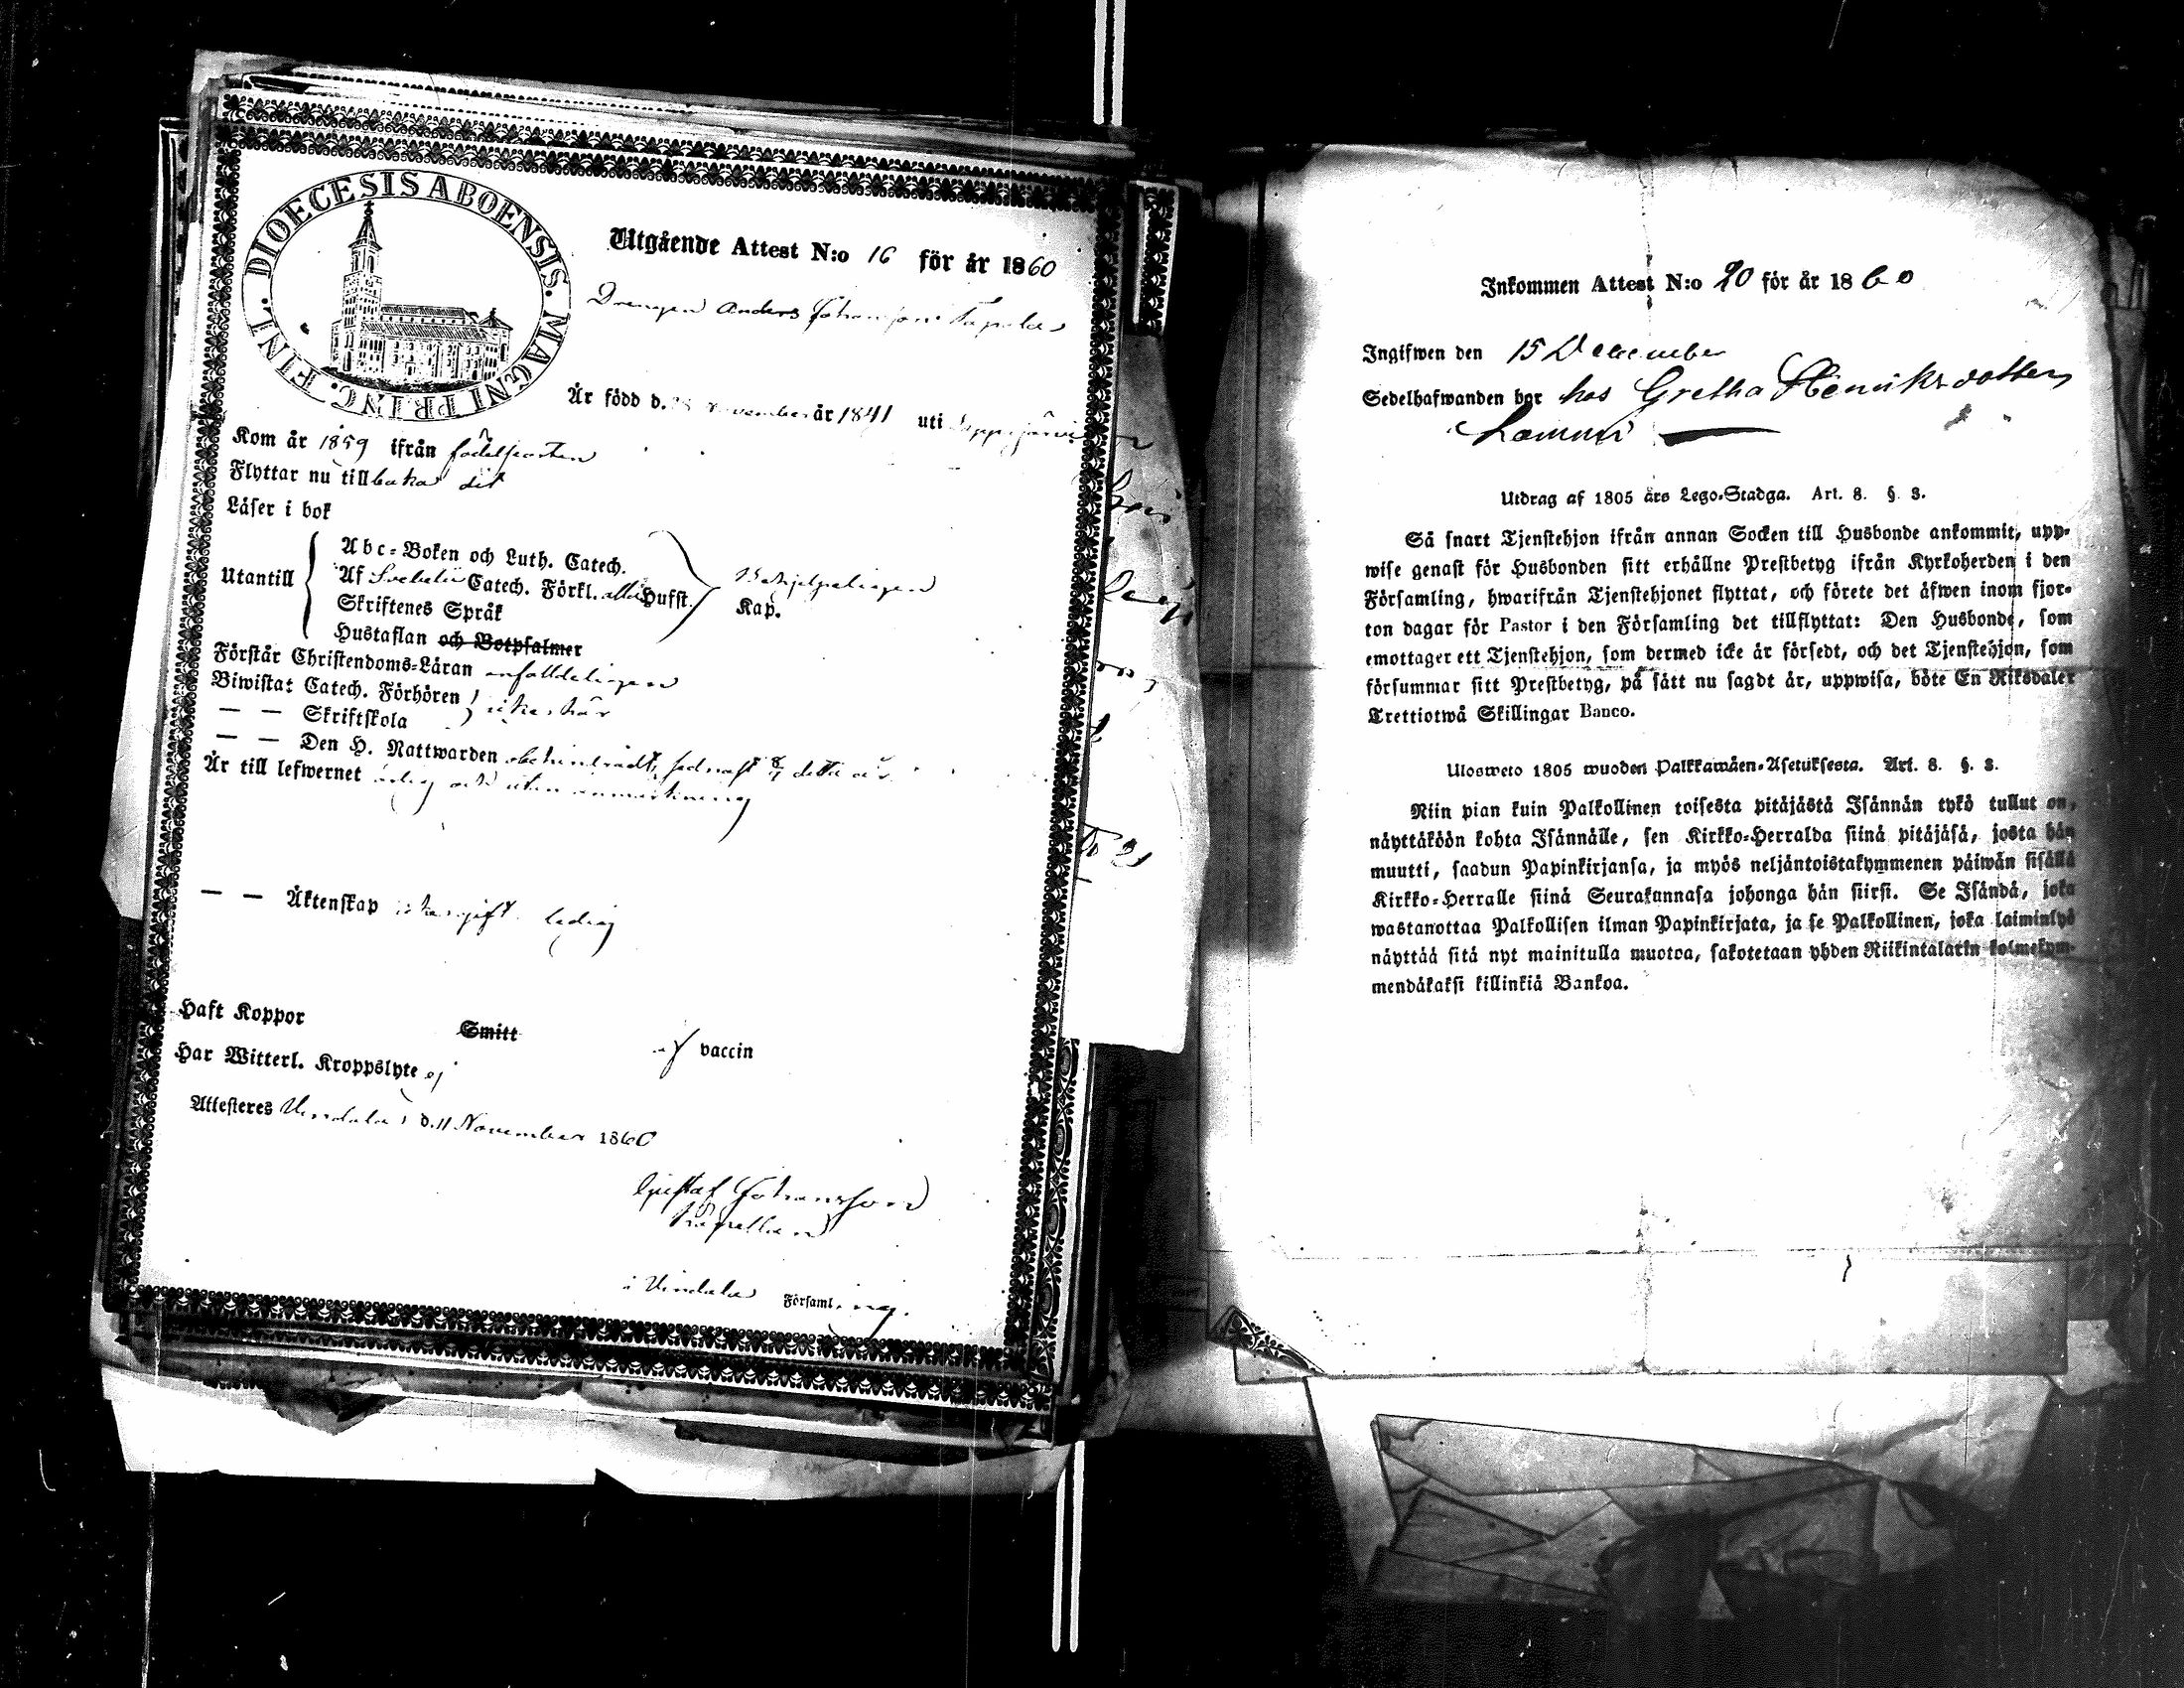 DIOECESIS ABOENSIS. MAGNI PRINC. FINL.
Utgående Attest N:o 16 för år 1860
Drengen Anders Johansson Tapala
Är född d. November år 1841 uti Lappajärvi
Kom år 1859 ifrån födelseorten
Flyttar nu tillbaka dit
Läser i bok
Utantill
Abc-Boken och Luth. Catech.
Af Svebelii Catech. Förkl. alla Hufst.
Skriftenes Språk Kap.
Hustaflan och Botpsalmer
Behjelpeligen
Förstår Christendoms-Läran enfaldeligen
Biwistat Catech. Förhören
— — Skriftskola
icke här
— — Den H. Nattwarden obehindradt, sednast detta år
Är till lefwernet ärlig och utan anmärkning
— — Äktenskap icke gift ledig
Haft Koppor Smitt af vaccin
Har Witterl. Kroppslyte ej
Attesteres Vindala d. 11 November 1860
Gustaf Johansson
Kapellan
i Vindala Församling.
Inkommen Attest N:o 20 för år 1860
Ingifwen den 15 December
Sedelhafwanden bor hos Gretha Henriksdotter
Lammi
Utdrag af 1805 års Lego-Stadga. Art. 8. §. 3.
Så snart Tjenstehjon ifrån annan Socken till Husbonde ankommit, upp-
wise genast för Husbonden sitt erhållne Prestbetyg ifrån Kyrkoherden i den
Församling, hwarifrån Tjenstehjonet flyttat, och förete det äfwen inom fjor-
ton dagar för Pastor i den Församling det tillflyttat: Den Husbonde, som
emottager ett Tjenstehjon, som dermed icke är försedt, och det Tjenstehjon, som
försummar sitt Prestbetyg, på sätt nu sagdt är, uppwisa, böte En Riksdaler
Trettiotwå Skillingar Banco.
Ulosweto 1805 wuoden Palkkawäen-Asetuksesta. Art. 8. §. 3.
Niin pian kuin Palkollinen toisesta pitäjästä Isännän tykö tullut on,
näyttäköön kohta Isännälle, sen Kirkko-Herralda siinä pitäjäsä, josta hän
muutti, saadun Papinkirjansa, ja myös neljäntoistakymmenen päiwän sisällä
Kirkko-Herralle siinä Seurakunnasa johonga hän siirsi. Se Isändä, joka
wastanottaa Palkollisen ilman Papinkirjata, ja se Palkollinen, joka laiminlyö
näyttää sitä nyt mainitulla muotoa, sakotetaan yhden Riikintalarin kolmekym-
mendäkaksi killinkiä Bankoa.